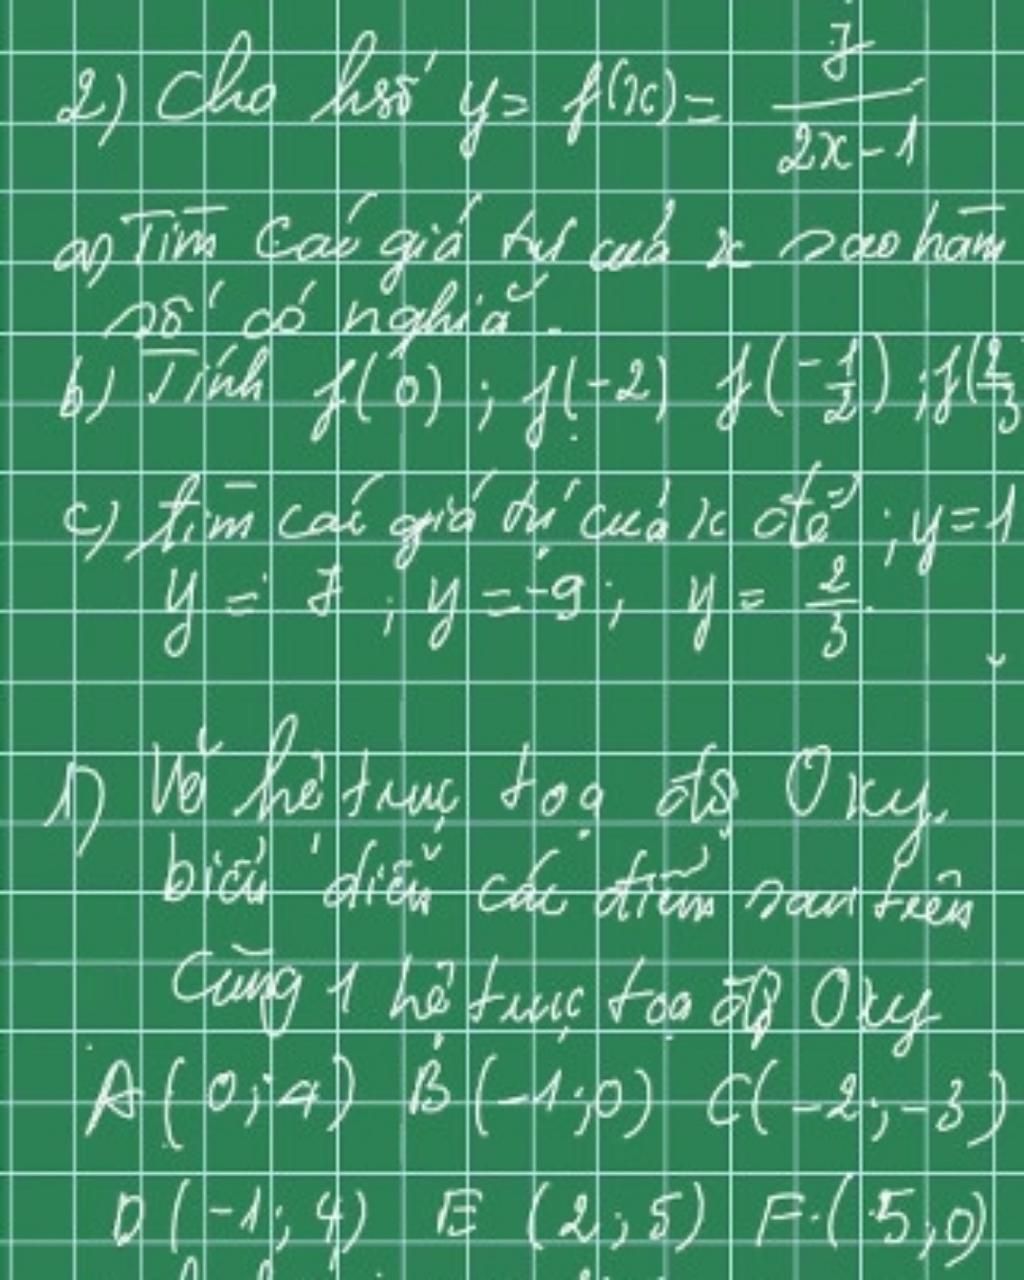 2) Cho hsố y = f(x) = 7/(2x-1)
a) Tìm các giá trị của x sao hàm
số có nghĩa.
b) Tính f(0) ; f(-2) f(-1/2) ; f(2/3
c) tìm các giá trị của x để ; y=1
y = 7 ; y = -9 ; y = 2/3.
1) Vẽ hệ trục toạ độ Oxy.
biểu diễn các điểm sau trên
Cùng 1 hệ trục toạ độ Oxy
A(0;4) B(-1;0) C(-2;-3)
D(-1;4) E (2;5) F.(5;0)